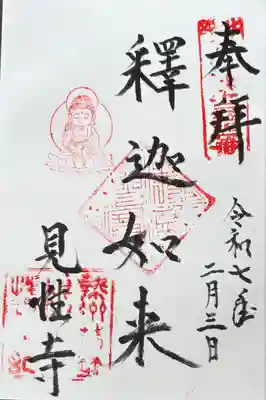 奉拝
令和七年
二月三日
釋迦如来
見性寺